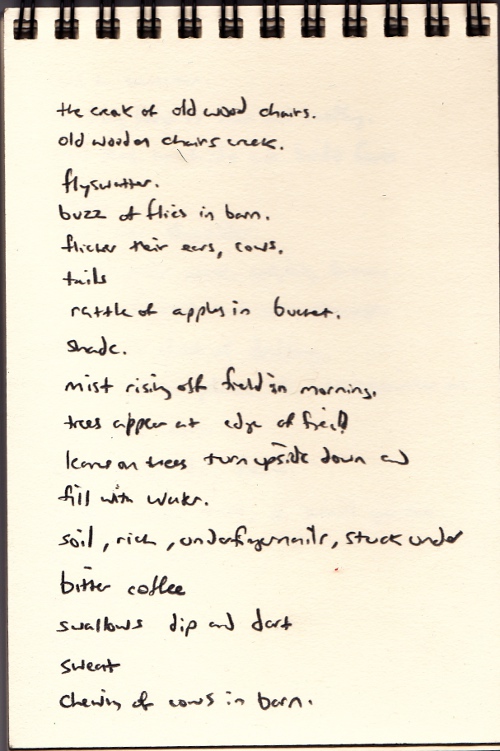 the creak of old wood chairs.
old wooden chairs creek.
flyswatter.
buzz of flies in barn.
flicker their ears, cows.
tails
rattle of apples in bucket.
shade.
mist rising off field in morning.
trees appear at edge of field
leaves on trees turn upside down and
fill with water.
soil, rich, underfingernails, stuck under
bitter coffee
swallows dip and dart
sweat
chewing of cows in barn.